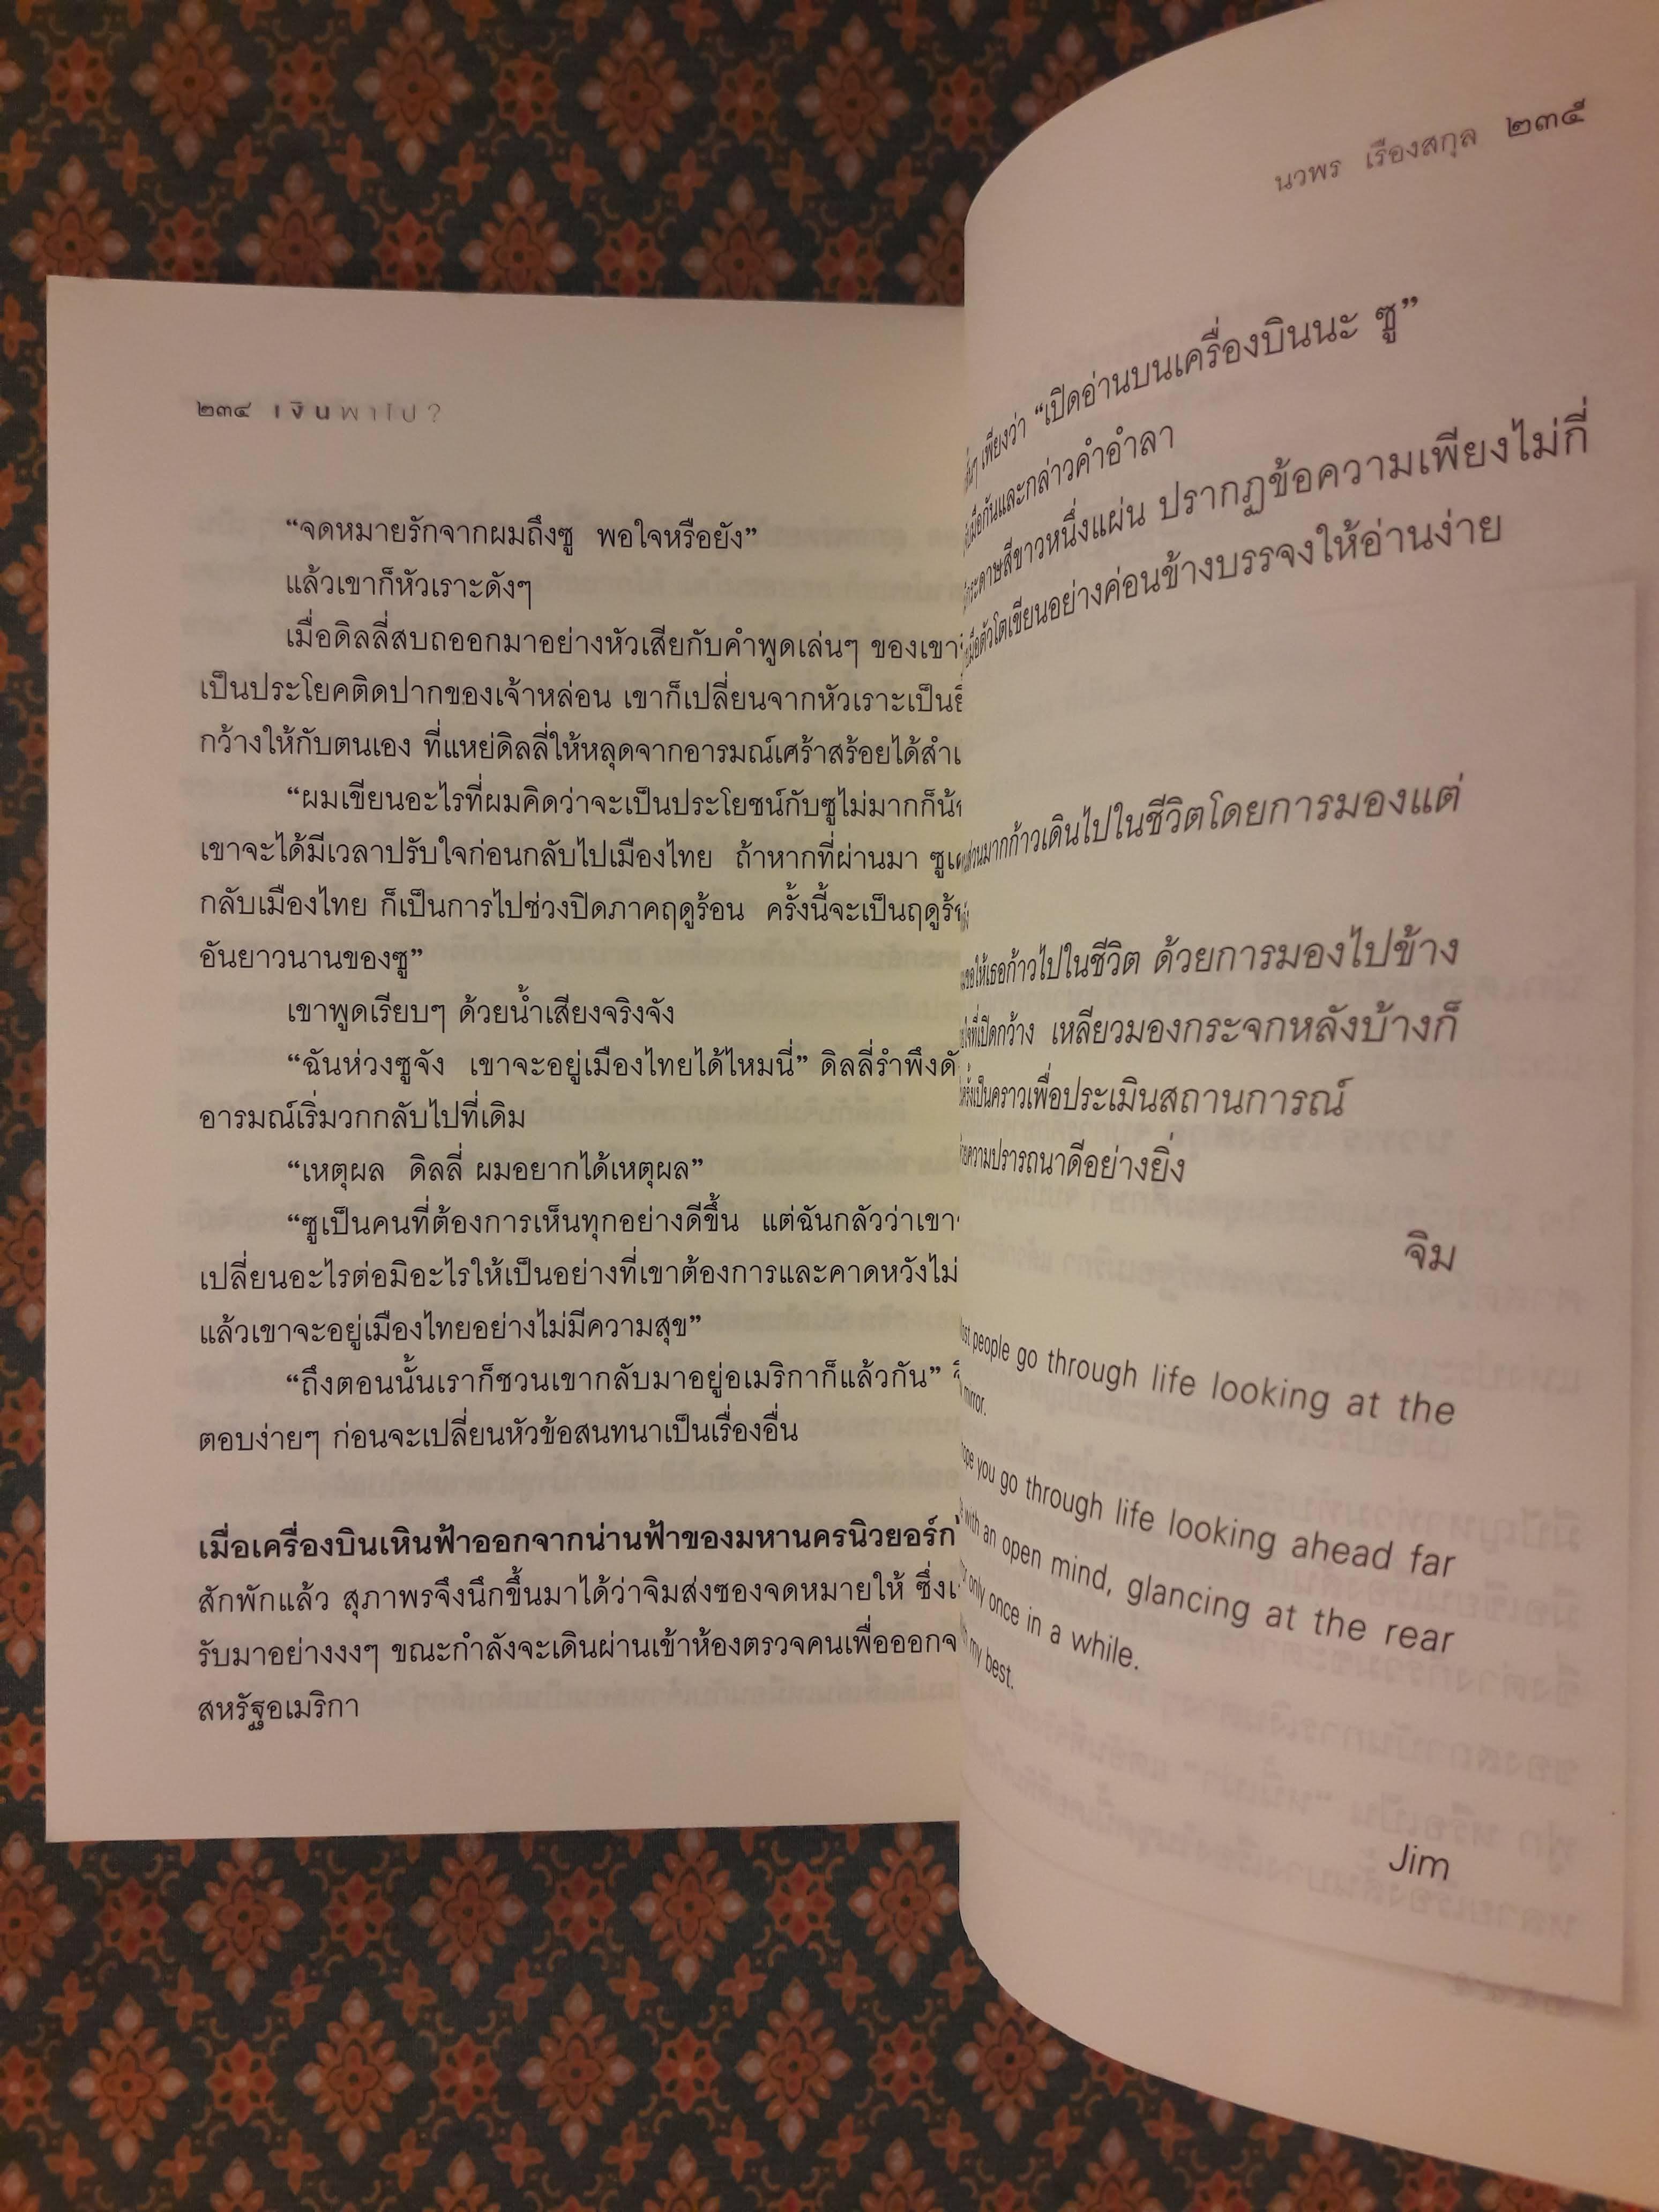 ๒๓๔ เงินพาไป?
“จดหมายรักจากผมถึงซู พอใจหรือยัง”
แล้วเขาก็หัวเราะดังๆ
เมื่อดิลลี่สบถออกมาอย่างหัวเสียกับคำพูดเล่นๆ ของเขา
เป็นประโยคติดปากของเจ้าหล่อน เขาก็เปลี่ยนจากหัวเราะเป็น
กว้างให้กับตนเอง ที่แหย่ดิลลี่ให้หลุดจากอารมณ์เศร้าสร้อยได้
“ผมเขียนอะไรที่ผมคิดว่าจะเป็นประโยชน์กับซูไม่มากก็
เขาจะได้มีเวลาปรับใจก่อนกลับไปเมืองไทย ถ้าหากที่ผ่านมา
กลับเมืองไทย ก็เป็นการไปช่วงปิดภาคฤดูร้อน ครั้งนี้จะเป็น
อันยาวนานของซู”
เขาพูดเรียบๆ ด้วยน้ำเสียงจริงจัง
“ฉันห่วงซูจัง เขาจะอยู่เมืองไทยได้ไหมนี่” ดิลลี่รำพึง
อารมณ์เริ่มวกกลับไปที่เดิม
“เหตุผล ดิลลี่ ผมอยากได้เหตุผล”
“ซูเป็นคนที่ต้องการเห็นทุกอย่างดีขึ้น แต่ฉันกลัวว่าเขา
เปลี่ยนอะไรต่อมิอะไรให้เป็นอย่างที่เขาต้องการและคาดหวังไม่
แล้วเขาจะอยู่เมืองไทยอย่างไม่มีความสุข”
“ถึงตอนนั้นเราก็ชวนเขากลับมาอยู่อเมริกาก็แล้วกัน”
ตอบง่ายๆ ก่อนจะเปลี่ยนหัวข้อสนทนาเป็นเรื่องอื่น
เมื่อเครื่องบินเหินฟ้าออกจากน่านฟ้าของมหานครนิวยอร์ก
สักพักแล้ว สุภาพรจึงนึกขึ้นมาได้ว่าจิมส่งซองจดหมายให้
รับมาอย่างงงๆ ขณะกำลังจะเดินผ่านเข้าห้องตรวจคนเพื่อออก
สหรัฐอเมริกา
นวพร เรืองสกุล ๒๓๕
เพียงว่า “เปิดอ่านบนเครื่องบินนะ ซู”
กันและกล่าวคำอำลา
กระดาษสีขาวหนึ่งแผ่น ปรากฏข้อความเพียงไม่กี่
ตัวโตเขียนอย่างค่อนข้างบรรจงให้อ่านง่าย
ก้าวเดินไปในชีวิตโดยการมองแต่
ขอให้เธอก้าวไปในชีวิต ด้วยการมองไปข้าง
ที่เปิดกว้าง เหลียวมองกระจกหลังบ้างก็
เป็นคราวเพื่อประเมินสถานการณ์
ความปรารถนาดีอย่างยิ่ง
จิม
people go through life looking at the
mirror.
you go through life looking ahead far
with an open mind, glancing at the rear
only once in a while.
my best.
Jim